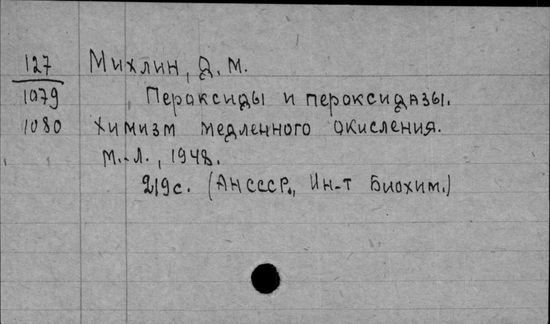 127 Михлин, Д. М.
1079 Пероксиды и пероксидазы.
1080 химизм медленного окисления.
М.-Л., 1948.
219с. (АН СССР., Ин-т Биохим.)